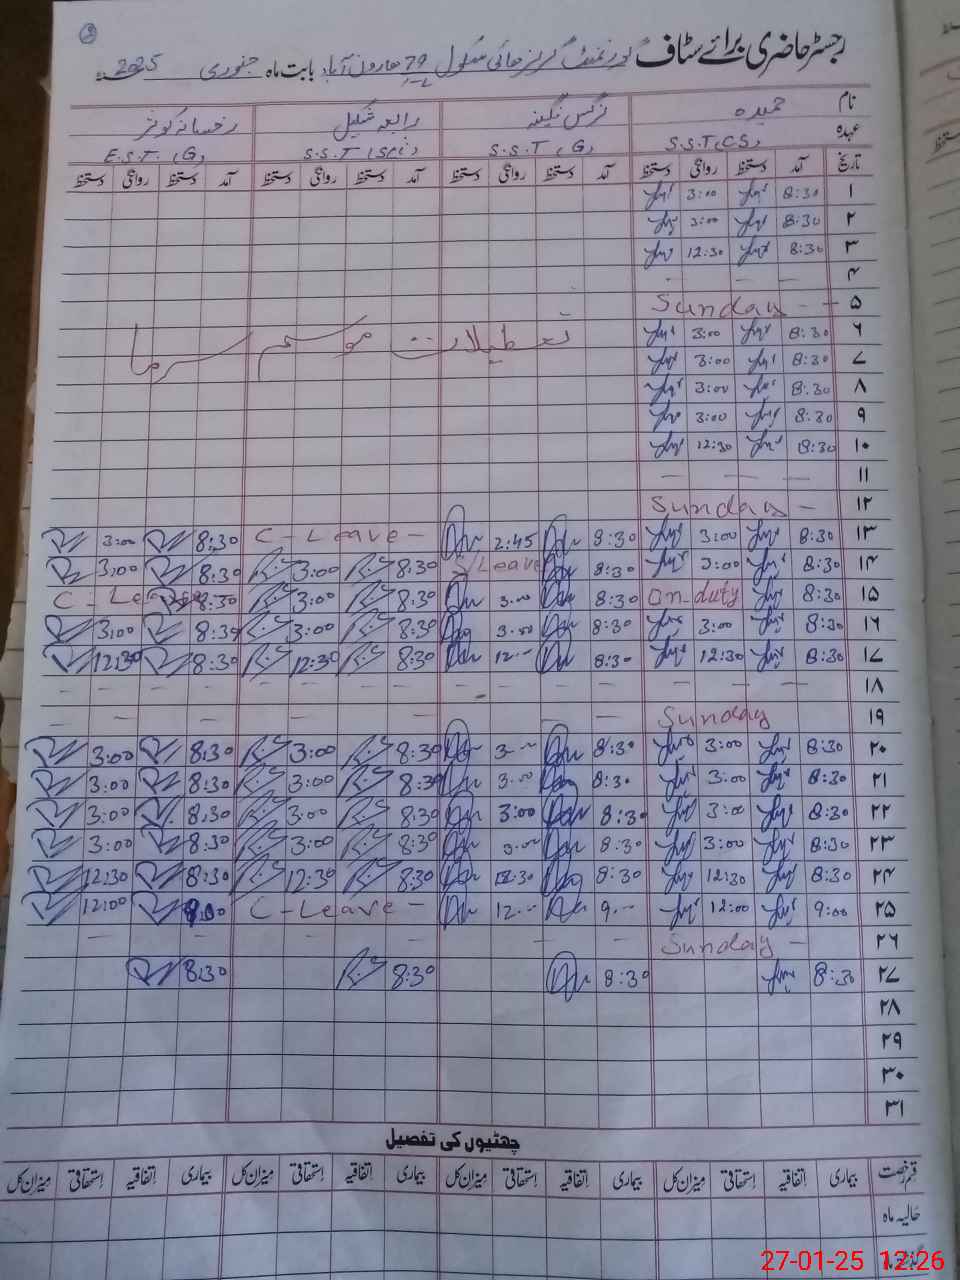 رجسٹر حاضری برائے سٹاف گورنمنٹ گرلز ہائی سکول 79 ہارون آباد بابت ماہ جنوری 2025ء
نام حمیدہ نرگس نگینہ رابعہ شکیل رخسانہ کوثر
عہدہ S.S.T (CS) S.S.T (G) S.S.T (Sci) E.S.T. (G)
تاریخ آمد دستخط روانگی دستخط آمد دستخط روانگی دستخط آمد دستخط روانگی دستخط آمد دستخط روانگی دستخط
۱ 8:30 3:00
۲ 8:30 3:00
۳ 8:30 12:30
۴ - - - -
۵ Sunday - -
تعطیلات موسم سرما
۶ 8:30 3:00
۷ 8:30 3:00
۸ 8:30 3:00
۹ 8:30 3:00
۱۰ 8:30 12:30
۱۱ - - - -
۱۲ Sunday -
۱۳ 8:30 3:00 8:30 2:45 C - Leave - 8:30 3:00
۱۴ 8:30 3:00 8:30 S/Leave 8:30 3:00 8:30 3:00
۱۵ 8:30 On-duty 8:30 3:00 8:30 3:00 8:30 C - Leave
۱۶ 8:30 3:00 8:30 3:00 8:30 3:00 8:30 3:00
۱۷ 8:30 12:30 8:30 12:-- 8:30 12:30 8:30 12:30
۱۸ - - - -
۱۹ Sunday
۲۰ 8:30 3:00 8:30 3:-- 8:30 3:00 8:30 3:00
۲۱ 8:30 3:00 8:30 3:00 8:30 3:00 8:30 3:00
۲۲ 8:30 3:00 8:30 3:00 8:30 3:00 8:30 3:00
۲۳ 8:30 3:00 8:30 3:00 8:30 3:00 8:30 3:00
۲۴ 8:30 12:30 8:30 12:30 8:30 12:30 8:30 12:30
۲۵ 9:00 12:00 9:-- 12:-- C - Leave - 9:00 12:00
۲۶ Sunday -
۲۷ 8:30 8:30 8:30 8:30
۲۸
۲۹
۳۰
۳۱
چھٹیوں کی تفصیل
قسم رخصت بیماری اتفاقیہ استحقاقی میزان کل بیماری اتفاقیہ استحقاقی میزان کل بیماری اتفاقیہ استحقاقی میزان کل بیماری اتفاقیہ استحقاقی میزان کل
حالیہ ماہ
27-01-25 12:26